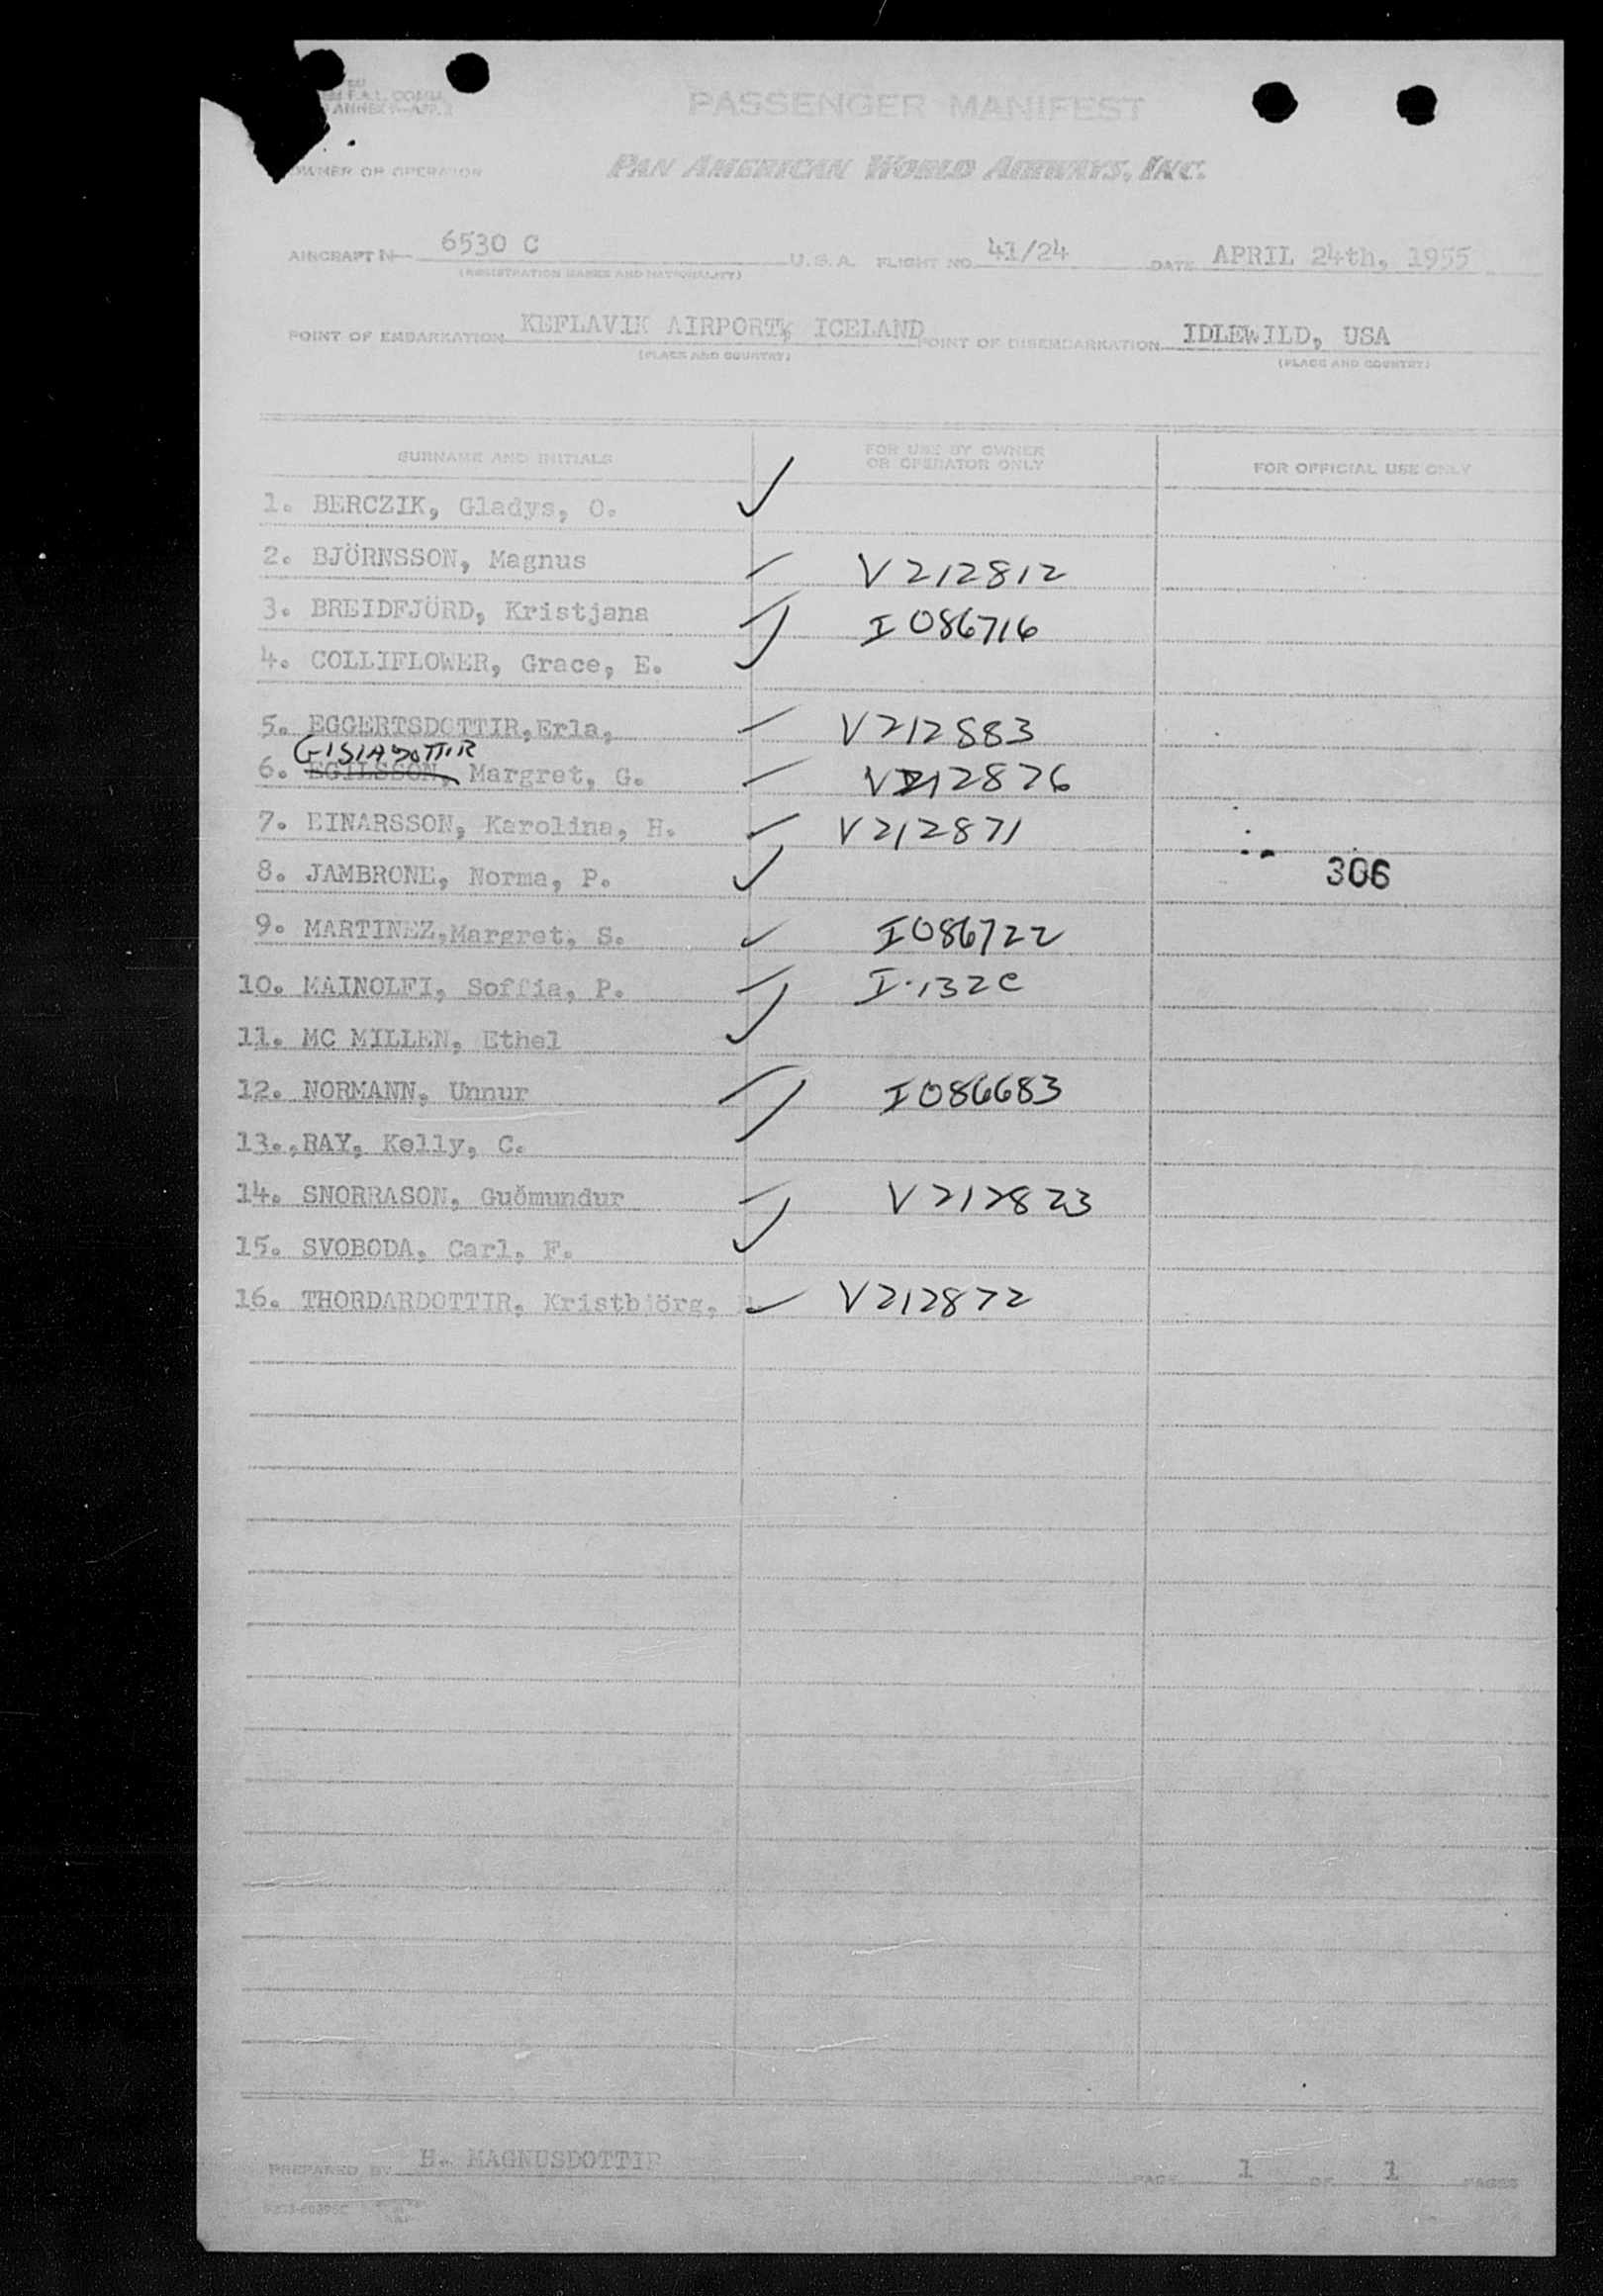 F.A.L. COMM.
ANNEX 9—APP. 2
PASSENGER MANIFEST
OWNER OR OPERATOR PAN AMERICAN WORLD AIRWAYS, INC.
AIRCRAFT N 6530 C U.S.A. FLIGHT NO. 41/24 DATE APRIL 24th, 1955
(REGISTRATION MARKS AND NATIONALITY)
POINT OF EMBARKATION KEFLAVIK AIRPORT, ICELAND POINT OF DISEMBARKATION IDLEWILD, USA
(PLACE AND COUNTRY) (PLACE AND COUNTRY)
SURNAME AND INITIALS FOR USE BY OWNER OR OPERATOR ONLY FOR OFFICIAL USE ONLY
1. BERCZIK, Gladys, O. ✓
2. BJÖRNSSON, Magnus V212812
3. BREIDFJÖRD, Kristjana I 086716
4. COLLIFLOWER, Grace, E. ✓
5. EGGERTSDOTTIR,Erla, V212883
GISLADOTTIR
6. EGILSSON, Margret, G. V212876
7. EINARSSON, Karolina, H. V212871
8. JAMBRONE, Norma, P. ✓ 306
9. MARTINEZ,Margret, S. I086722
10. MAINOLFI, Soffia, P. I-132C
11. MC MILLEN, Ethel ✓
12. NORMANN, Unnur I086683
13.,RAY, Kelly, C. ✓
14. SNORRASON, Guðmundur V212823
15. SVOBODA, Carl, F. ✓
16. THORDARDOTTIR, Kristbjörg, V212872
PREPARED BY H. MAGNUSDOTTIR PAGE 1 OF 1 PAGES